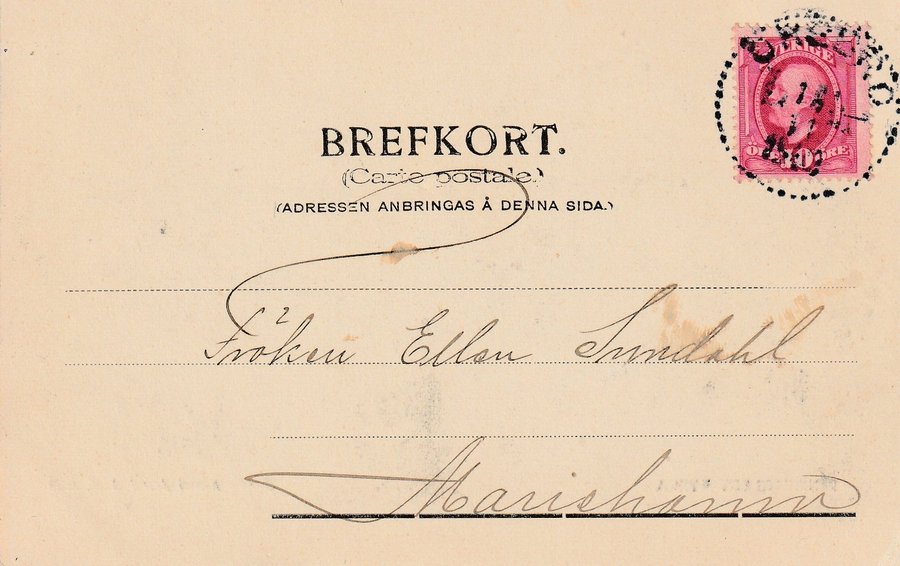 BREFKORT.
(Carte postale.)
(ADRESSEN ANBRINGAS Å DENNA SIDA.)
SVERIGE
10
ÖREBRO
Fröken Ellen Sundahl
Mariehamn